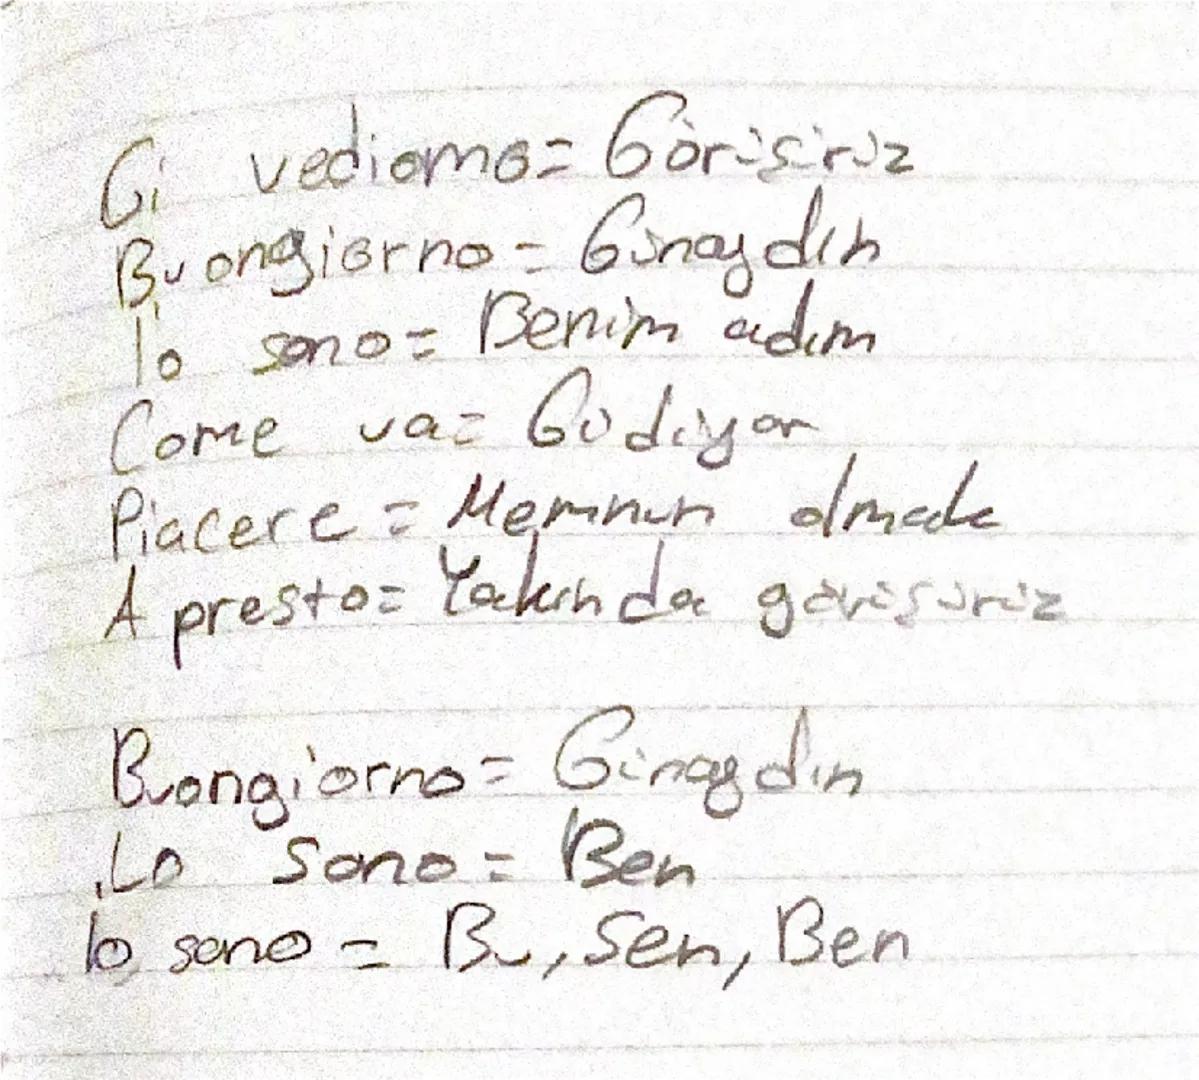 Ci vediamo= Görüşürüz
Buongiorno = Günaydın
Io sono= Benim adım
Come va= Gidiyor
Piacere = Memnun olmak
A presto= Yakında görüşürüz
Buongiorno= Günaydın
Lo Sono = Ben
Io sono = Bu, Sen, Ben